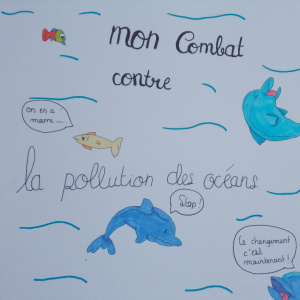 mon Combat
contre
on en a
marre....
la pollution des océans
Stop !
Le changement
c'est
maintenant !